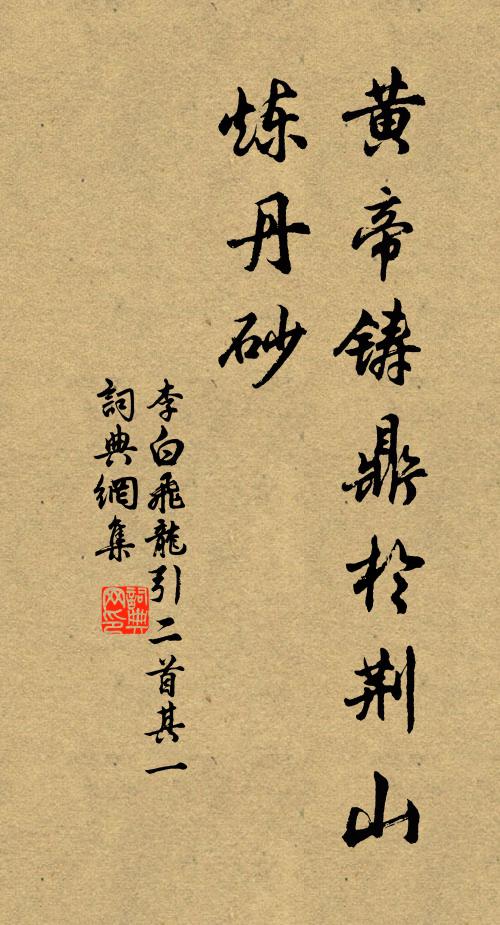 黄帝鑄鼎於荆山
炼丹砂
李白飛龍引二首其一
詞典網集
詞典網印